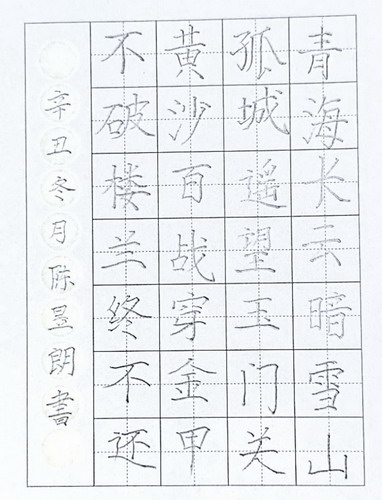 青海长云暗雪山
孤城遥望玉门关
黄沙百战穿金甲
不破楼兰终不还
辛丑冬月陈昱朗書